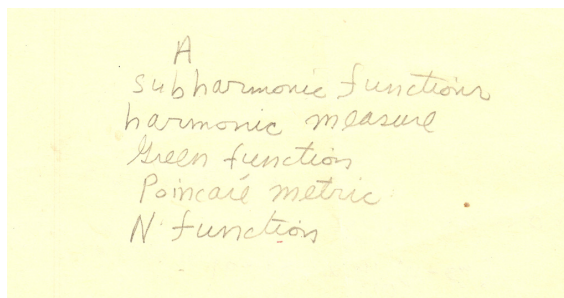 A
subharmonic functions
harmonic measure
Green function
Poincaré metric
N function